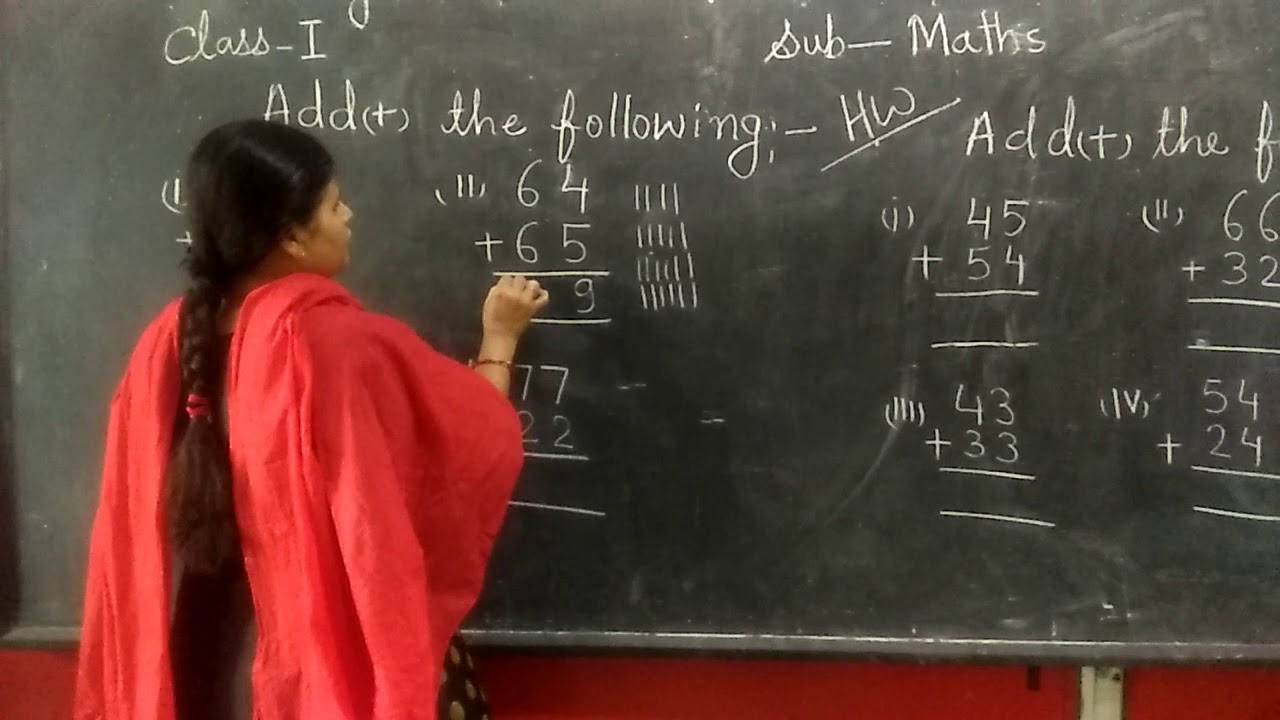 Class-I
Sub- Maths
Add(+) the following:- HW
(II) 64
+ 65
9
77
22
Add(+) the f
(i) 45
+ 54
(II) 66
+ 32
(III) 43
+ 33
(IV) 54
+ 24